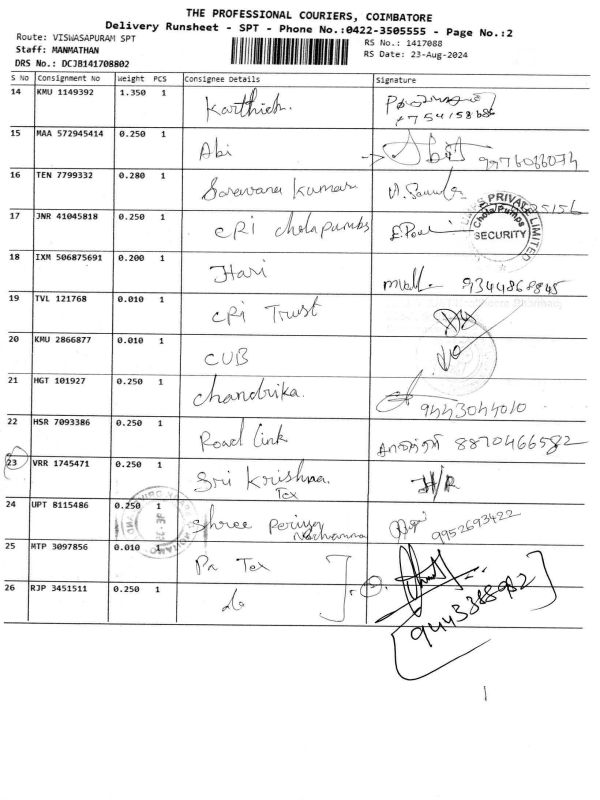 THE PROFESSIONAL COURIERS, COIMBATORE
Delivery Runsheet - SPT - Phone No.:0422-3505555 - Page No.:2
Route: VISWASAPURAM SPT
RS No.: 1417088
Staff: MANMATHAN
RS Date: 23-Aug-2024
DRS No.: DCJB141708802
S No Consignment No Weight PCS Consignee Details Signature
14 KMU 1149392 1.350 1 Karthick.
15 MAA 572945414 0.250 1 Abi
16 TEN 7799332 0.280 1 Saravana Kumar
17 JNR 41045818 0.250 1 CPI cholapumbs
PRIVATE LIMITED
Chola Pumps
SECURITY
18 IXM 506875691 0.200 1 Hari 9344868845
19 TVL 121768 0.010 1 CPI Trust
20 KMU 2866877 0.010 1 CUB
21 HGT 101927 0.250 1 Chandrika. 9443044010
22 HSR 7093386 0.250 1 Road Link 8870466582
23 VRR 1745471 0.250 1 Sri Krishna Tex H/R
24 UPT 8115486 0.250 1 Shree 9952693422
25 MTP 3097856 0.010 1 Pn Tex
26 RJP 3451511 0.250 1 do